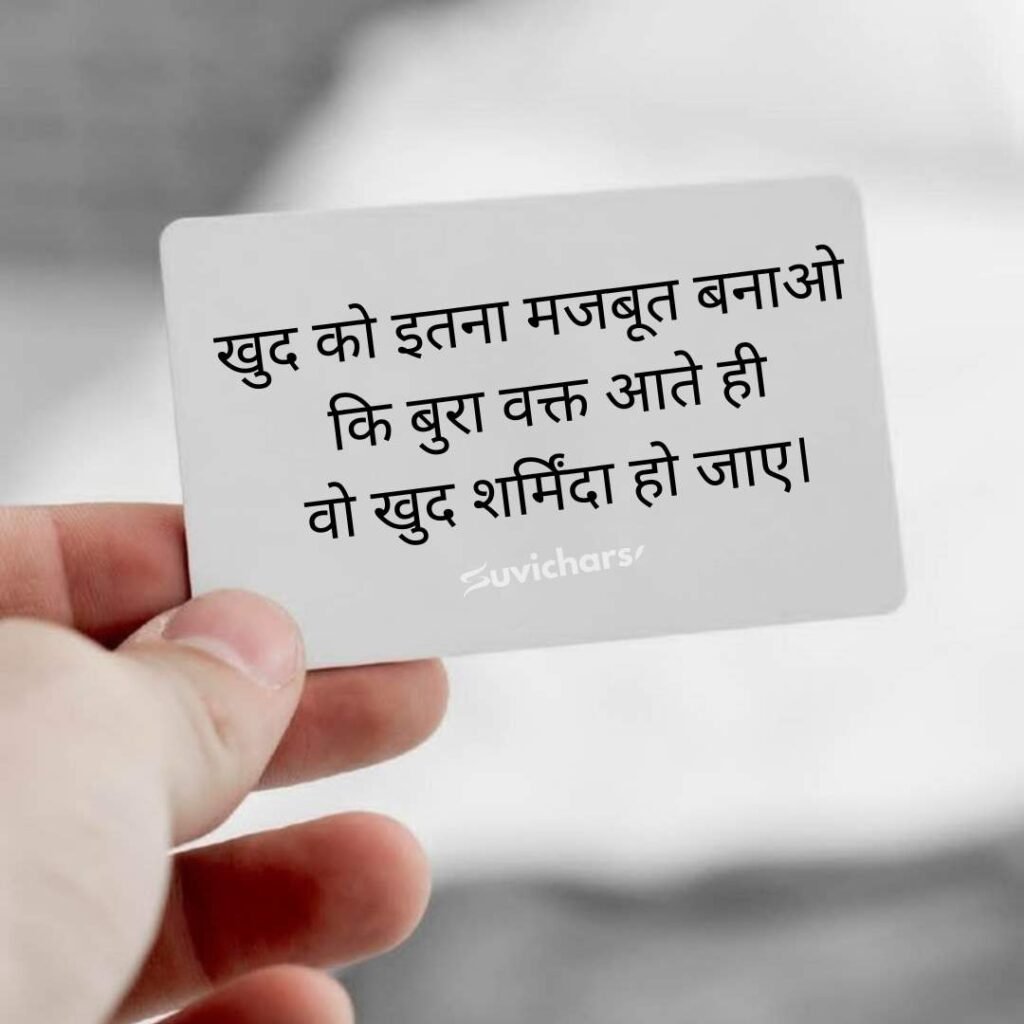 खुद को इतना मजबूत बनाओ
कि बुरा वक्त आते ही
वो खुद शर्मिंदा हो जाए।
Suvichars